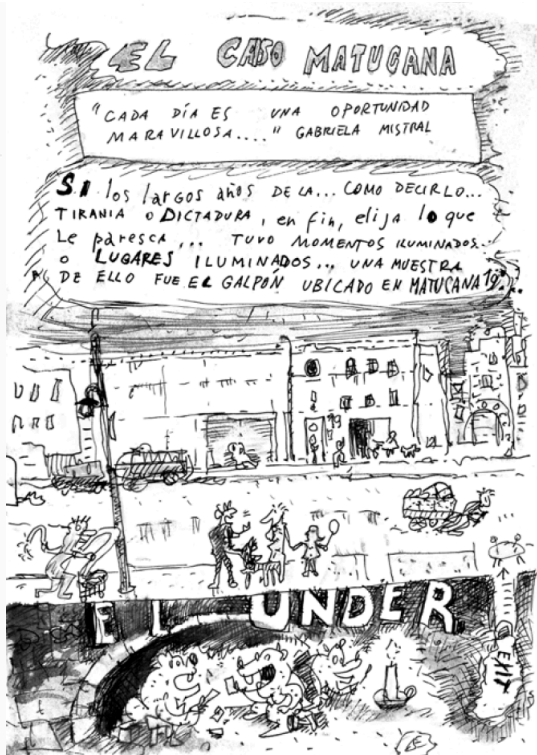 EL CASO MATUCANA
"CADA DÍA ES UNA OPORTUNIDAD
MARAVILLOSA...." GABRIELA MISTRAL
SI los largos años DE LA... COMO DECIRLO...
TIRANIA O DICTADURA, en fin, elija lo que
Le paresca... TUVO MOMENTOS ILUMINADOS..
o LUGARES ILUMINADOS... UNA MUESTRA
DE ELLO FUE EL GALPÓN UBICADO EN MATUCANA 19...
19
EL UNDER
EXIT